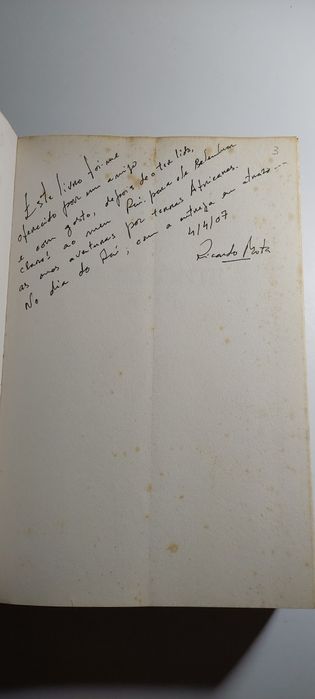 3
Este livro foi-me
oferecido por um amigo
e com gosto, depois de o ter lido,
claro! ao meu Pai. para ele relembrar
as suas aventuras por terras Africanas.
No dia do Pai, com a entrega em atraso...
4/4/07
Ricardo Mota